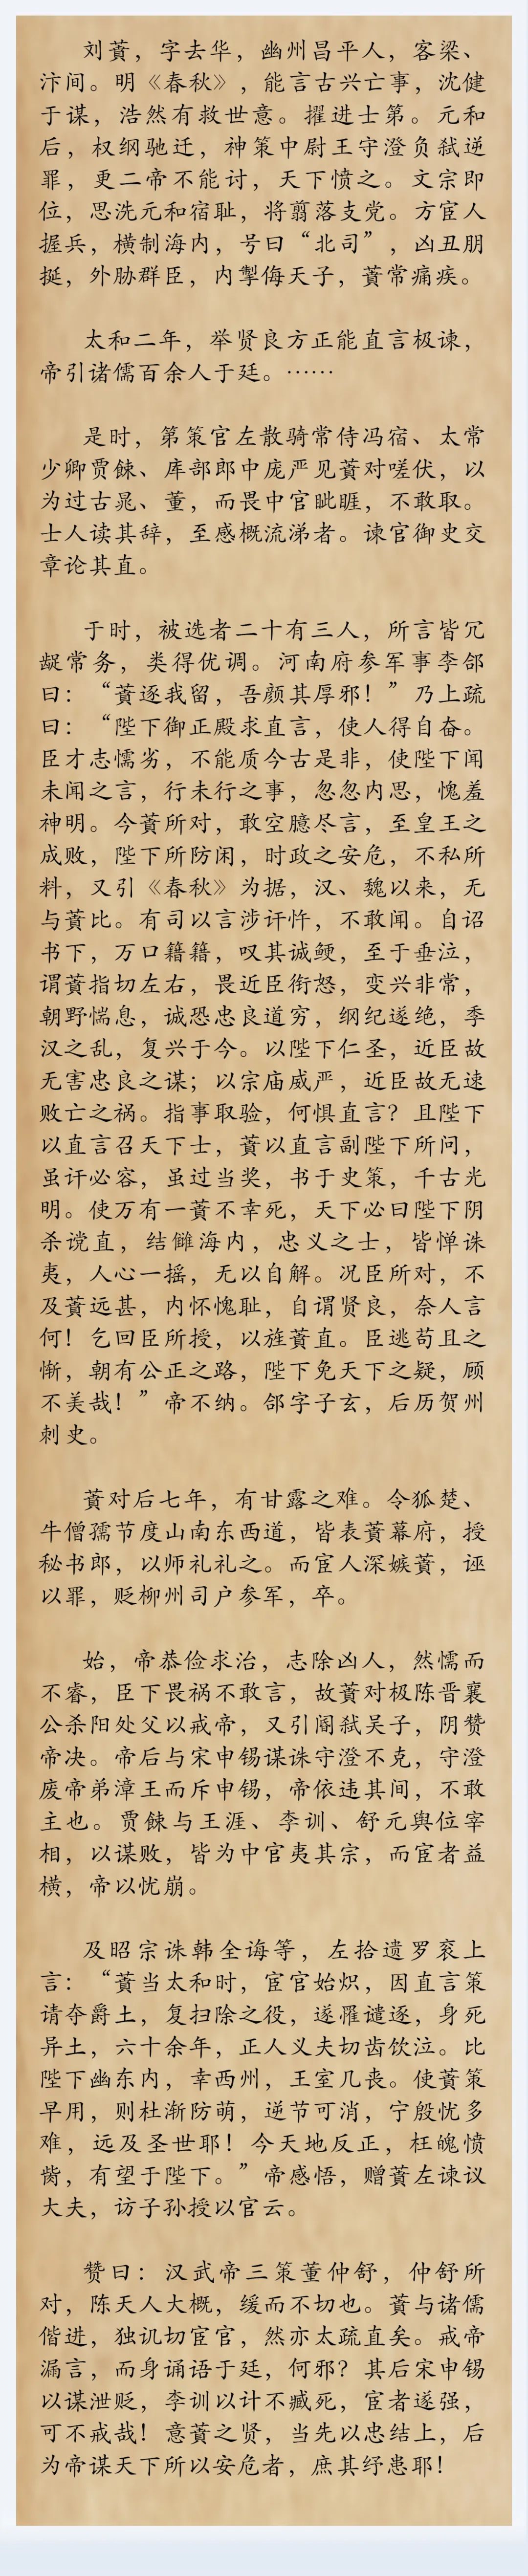 刘蕡，字去华，幽州昌平人，客梁、
汴间。明《春秋》，能言古兴亡事，沈健
于谋，浩然有救世意。擢进士第。元和
后，权纲驰迁，神策中尉王守澄负弑逆
罪，更二帝不能讨，天下愤之。文宗即
位，思洗元和宿耻，将翦落支党。方宦人
握兵，横制海内，号曰“北司”，凶丑朋
挺，外胁群臣，内掣侮天子，蕡常痛疾。
太和二年，举贤良方正能直言极谏，
帝引诸儒百余人于廷。……
是时，第策官左散骑常侍冯宿、太常
少卿贾餗、库部郎中庞严见蕡对嗟伏，以
为过古晁、董，而畏中官眦睚，不敢取。
士人读其辞，至感概流涕者。谏官御史交
章论其直。
于时，被选者二十有三人，所言皆冗
龊常务，类得优调。河南府参军事李郃
曰：“蕡逐我留，吾颜其厚邪！”乃上疏
曰：“陛下御正殿求直言，使人得自奋。
臣才志懦劣，不能质今古是非，使陛下闻
未闻之言，行未行之事，忽忽内思，愧羞
神明。今蕡所对，敢空臆尽言，至皇王之
成败，陛下所防闲，时政之安危，不私所
料，又引《春秋》为据，汉、魏以来，无
与蕡比。有司以言涉讦忤，不敢闻。自诏
书下，万口籍籍，叹其诚鲠，至于垂泣，
谓蕡指切左右，畏近臣衔怒，变兴非常，
朝野惴息，诚恐忠良道穷，纲纪遂绝，季
汉之乱，复兴于今。以陛下仁圣，近臣故
无害忠良之谋；以宗庙威严，近臣故无速
败亡之祸。指事取验，何惧直言？且陛下
以直言召天下士，蕡以直言副陛下所问，
虽讦必容，虽过当奖，书于史策，千古光
明。使万有一蕡不幸死，天下必曰陛下阴
杀谠直，结雠海内，忠义之士，皆惮诛
夷，人心一摇，无以自解。况臣所对，不
及蕡远甚，内怀愧耻，自谓贤良，奈人言
何！乞回臣所授，以旌蕡直。臣逃苟且之
惭，朝有公正之路，陛下免天下之疑，顾
不美哉！”帝不纳。郃字子玄，后历贺州
刺史。
蕡对后七年，有甘露之难。令狐楚、
牛僧孺节度山南东西道，皆表蕡幕府，授
秘书郎，以师礼礼之。而宦人深嫉蕡，诬
以罪，贬柳州司户参军，卒。
始，帝恭俭求治，志除凶人，然懦而
不睿，臣下畏祸不敢言，故蕡对极陈晋襄
公杀阳处父以戒帝，又引阍弑吴子，阴赞
帝决。帝后与宋申锡谋诛守澄不克，守澄
废帝弟漳王而斥申锡，帝依违其间，不敢
主也。贾餗与王涯、李训、舒元舆位宰
相，以谋败，皆为中官夷其宗，而宦者益
横，帝以忧崩。
及昭宗诛韩全诲等，左拾遗罗衮上
言：“蕡当太和时，宦官始炽，因直言策
请夺爵土，复扫除之役，遂罹谴逐，身死
异土，六十余年，正人义夫切齿饮泣。比
陛下幽东内，幸西州，王室几丧。使蕡策
早用，则杜渐防萌，逆节可消，宁殷忧多
难，远及圣世耶！今天地反正，枉魄愤
胔，有望于陛下。”帝感悟，赠蕡左谏议
大夫，访子孙授以官云。
赞曰：汉武帝三策董仲舒，仲舒所
对，陈天人大概，缓而不切也。蕡与诸儒
偕进，独讥切宦官，然亦太疏直矣。戒帝
漏言，而身诵语于廷，何邪？其后宋申锡
以谋泄贬，李训以计不臧死，宦者遂强，
可不戒哉！意蕡之贤，当先以忠结上，后
为帝谋天下所以安危者，庶其纾患耶！